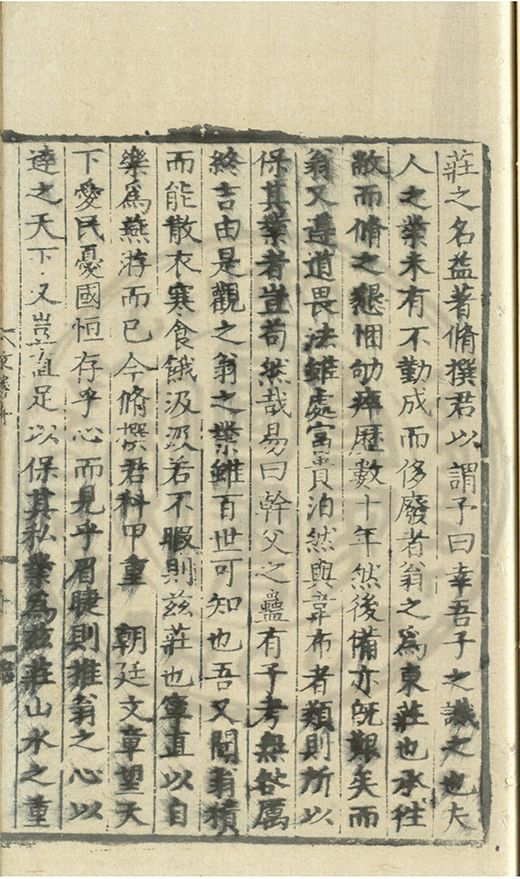 莊之名益著脩撰君以謂予曰幸吾子之識之也夫
人之業未有不勤成而侈廢者翁之爲東莊也承往
敝而脩之懇悃劬瘁歷數十年然後備亦旣艱矣而
翁又遵道畏法雖處富貴泊然與韋布者類則所以
保其業者豈苟然哉易曰幹父之蠱有子考無咎厲
終吉由是觀之翁之業雖百世可知也吾又聞翁積
而能散衣寒食餓汲汲若不暇則玆莊也寧直以自
樂爲燕游而已今脩撰君科甲重 朝廷文章望天
下愛民憂國恒存乎心而見乎眉睫則推翁之心以
達之天下又豈直足以保其私業爲玆莊山水之重